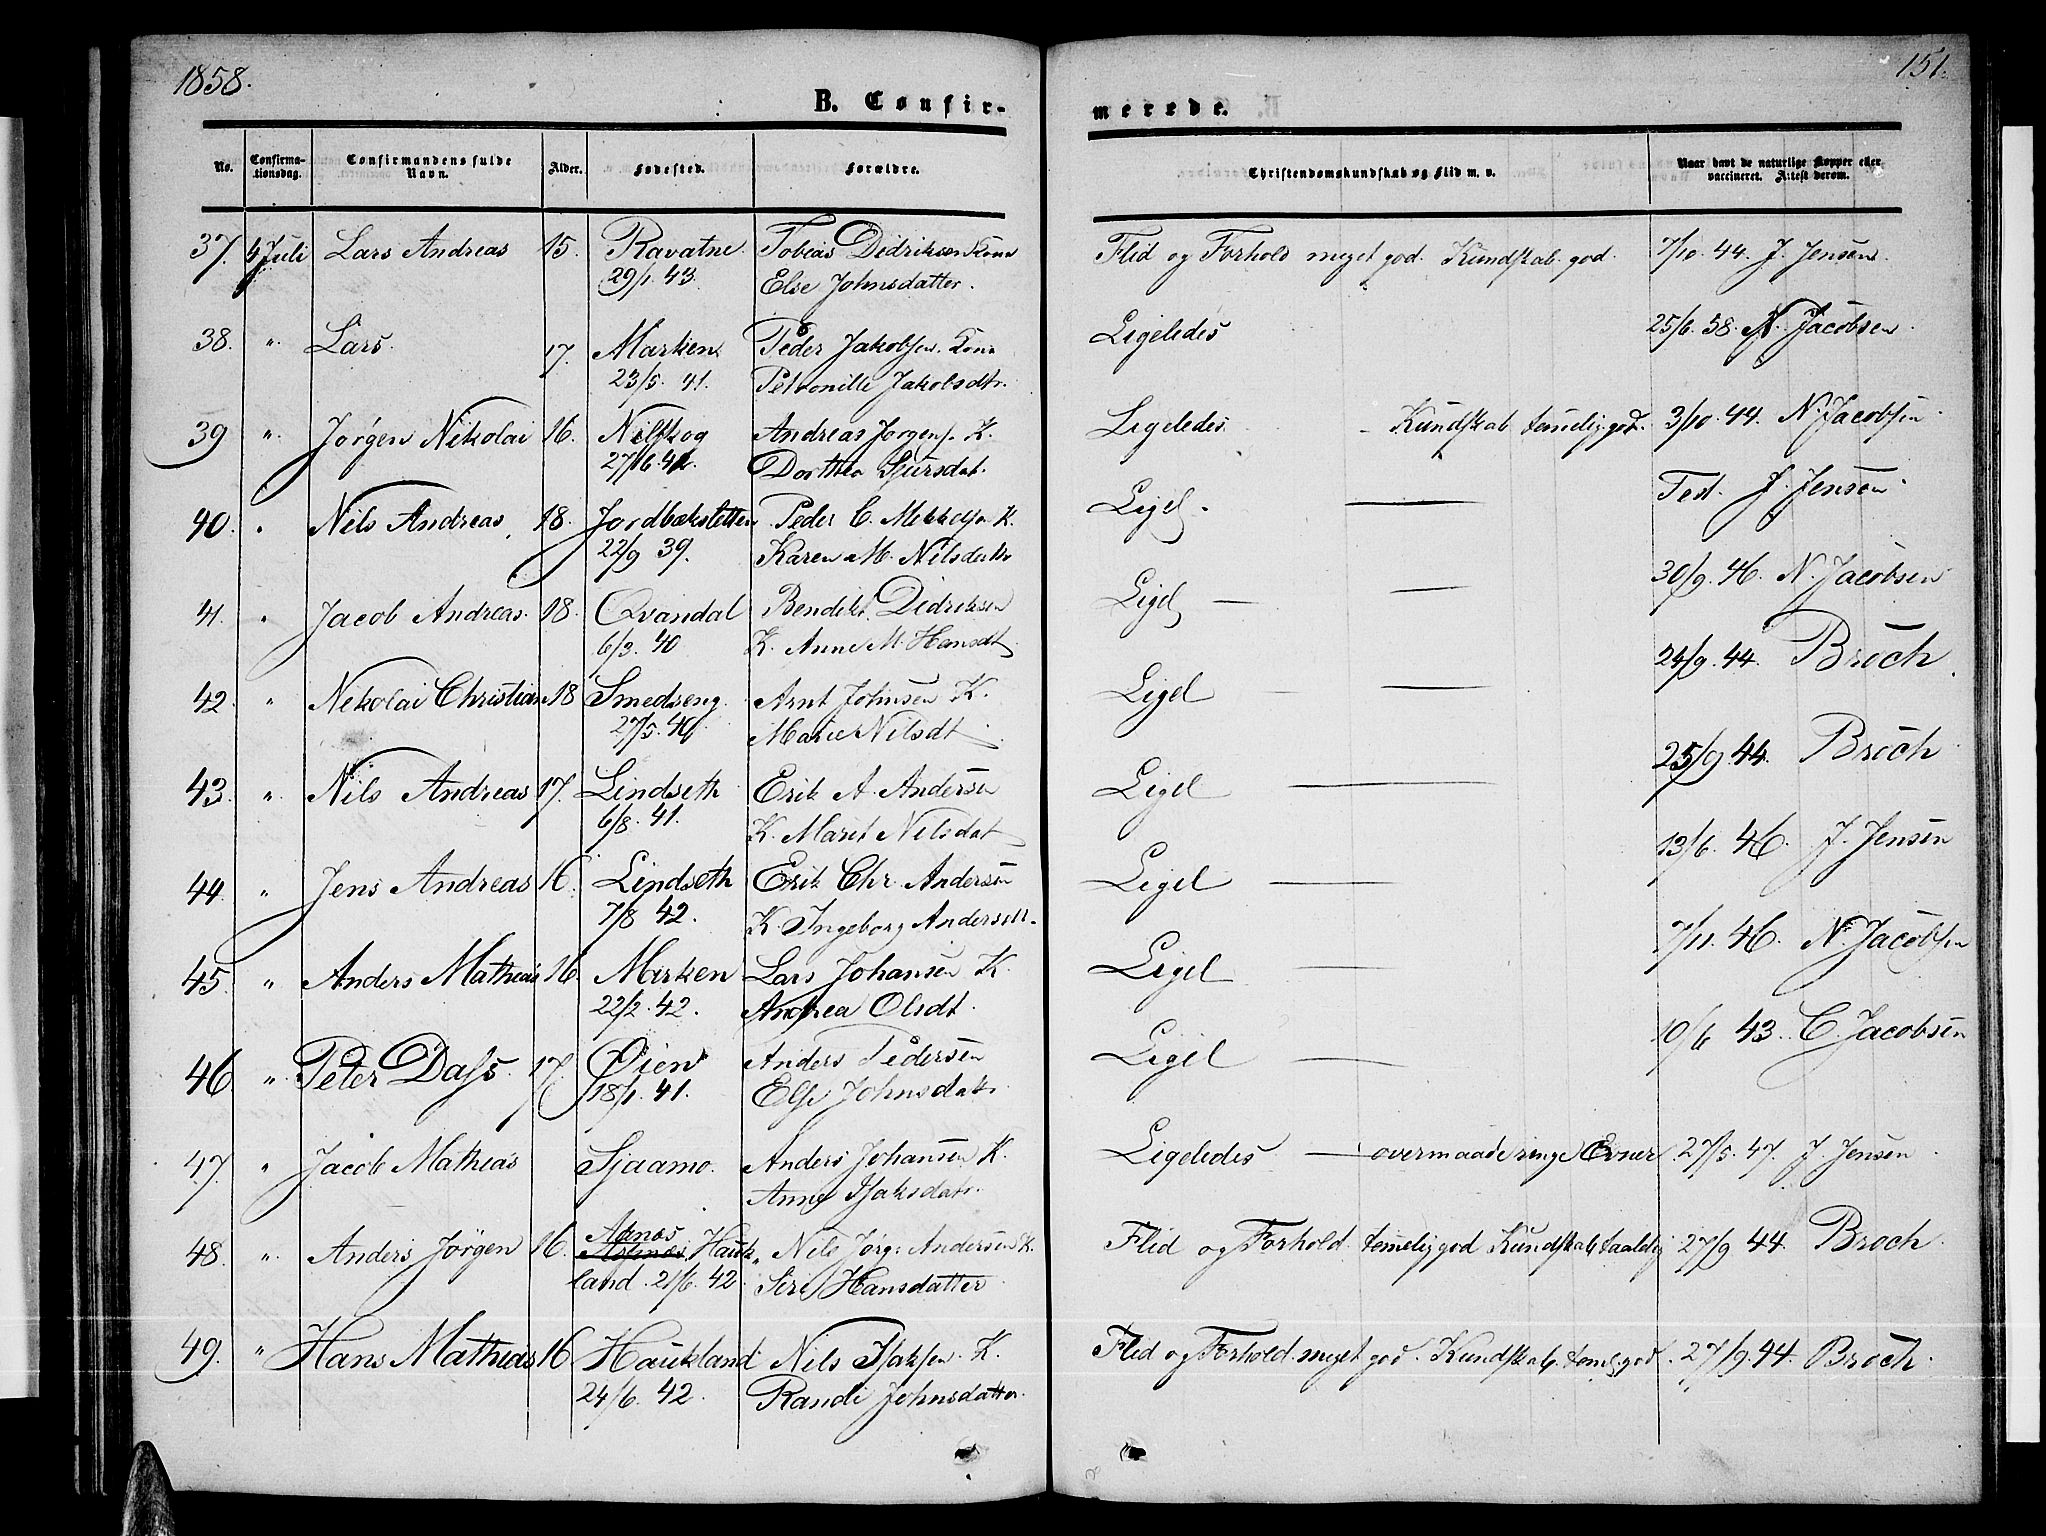 1858.
151.
B. Confir-
merede.
No.
Confirma-
tionsdag.
Confirmandens fulde
Navn.
Alder.
Fødested.
Forældre.
Christendomskundskab og Flid m. v.
Naar havt de naturlige Kopper eller
vaccineret. Attest derom.
37. Juli Lars Andreas 15. Ravatne Tobias Didriksen Kone Flid og Forhold meget god. Kundskab god. 7/10. 44. J. Jensen
29/1. 43. Else Johnsdatter.
38. " Lars 17. Marken Peder Jakobsen. Kone Ligeledes 25/6. 58. N. Jacobsen.
23/5. 41. Petronille Jakobsdtr.
39 " Jørgen Nikolai 16. Nilskog Andreas Jørgens. K. Ligeledes - Kundskab temelig god. 3/10. 44. N. Jacobsen
Dorthea Sjursdat.
40. " Nils Andreas 18. Jordbæksletten Peder C. Mikkelsn K. Ligel. — Test. J. Jensen
22/9 39. Karen M. Nilsdatr
41. " Jacob Andreas. 18. Qvandal Bendikt Didriksen Ligel — — 30/9. 46. N. Jacobsen
6/3. 40 K. Anne M. Hansdt
42. " Nekolai Christian 18 Smedseng Arnt Johnsen K. Ligel — — 24/9. 44. Broch
27/5. 40. Marie Nilsdt
43. " Nils Andreas 17. Lindseth Erik A. Andersen Ligel — 25/9 44. Broch
6/8. 41. K. Marit Nilsdat
44. " Jens Andreas 16. Lindseth Erik Chr. Andersen Ligel — 13/6. 46. J. Jensen
7/8 42. K. Ingeborg Andersdtr.
45. " Anders Mathias 16. Marken Lars Johansen K. Ligel — 7/11. 46. N. Jacobsen
22/2. 42. Andrea Olsdt.
46 " Peter Dass. 17. Øien Anders Pedersen Ligel — 10/6 43. C. Jacobsen
18/1. 41. Else Johnsdatr.
47. " Jacob Mathias Sjaamo. Anders Johansen K. Ligeledes — overmaade ringe Evner. 27/5. 47. J. Jensen
Anne Isaksdatr.
48. " Anders Jørgen 16. Hauk- Nils Jørg: Andersen K. Flid og Forhold temelig god Kundskab taalelig 27/9 44. Broch
land. 21/6. 42. Siri Hansdatter
49. " Hans Mathias 16 Haukland Nils Isaksen. K. Flid og Forhold meget god. Kundskab. temel. god. 27/9. 44. Broch.
24/6. 42. Randi Johnsdatter